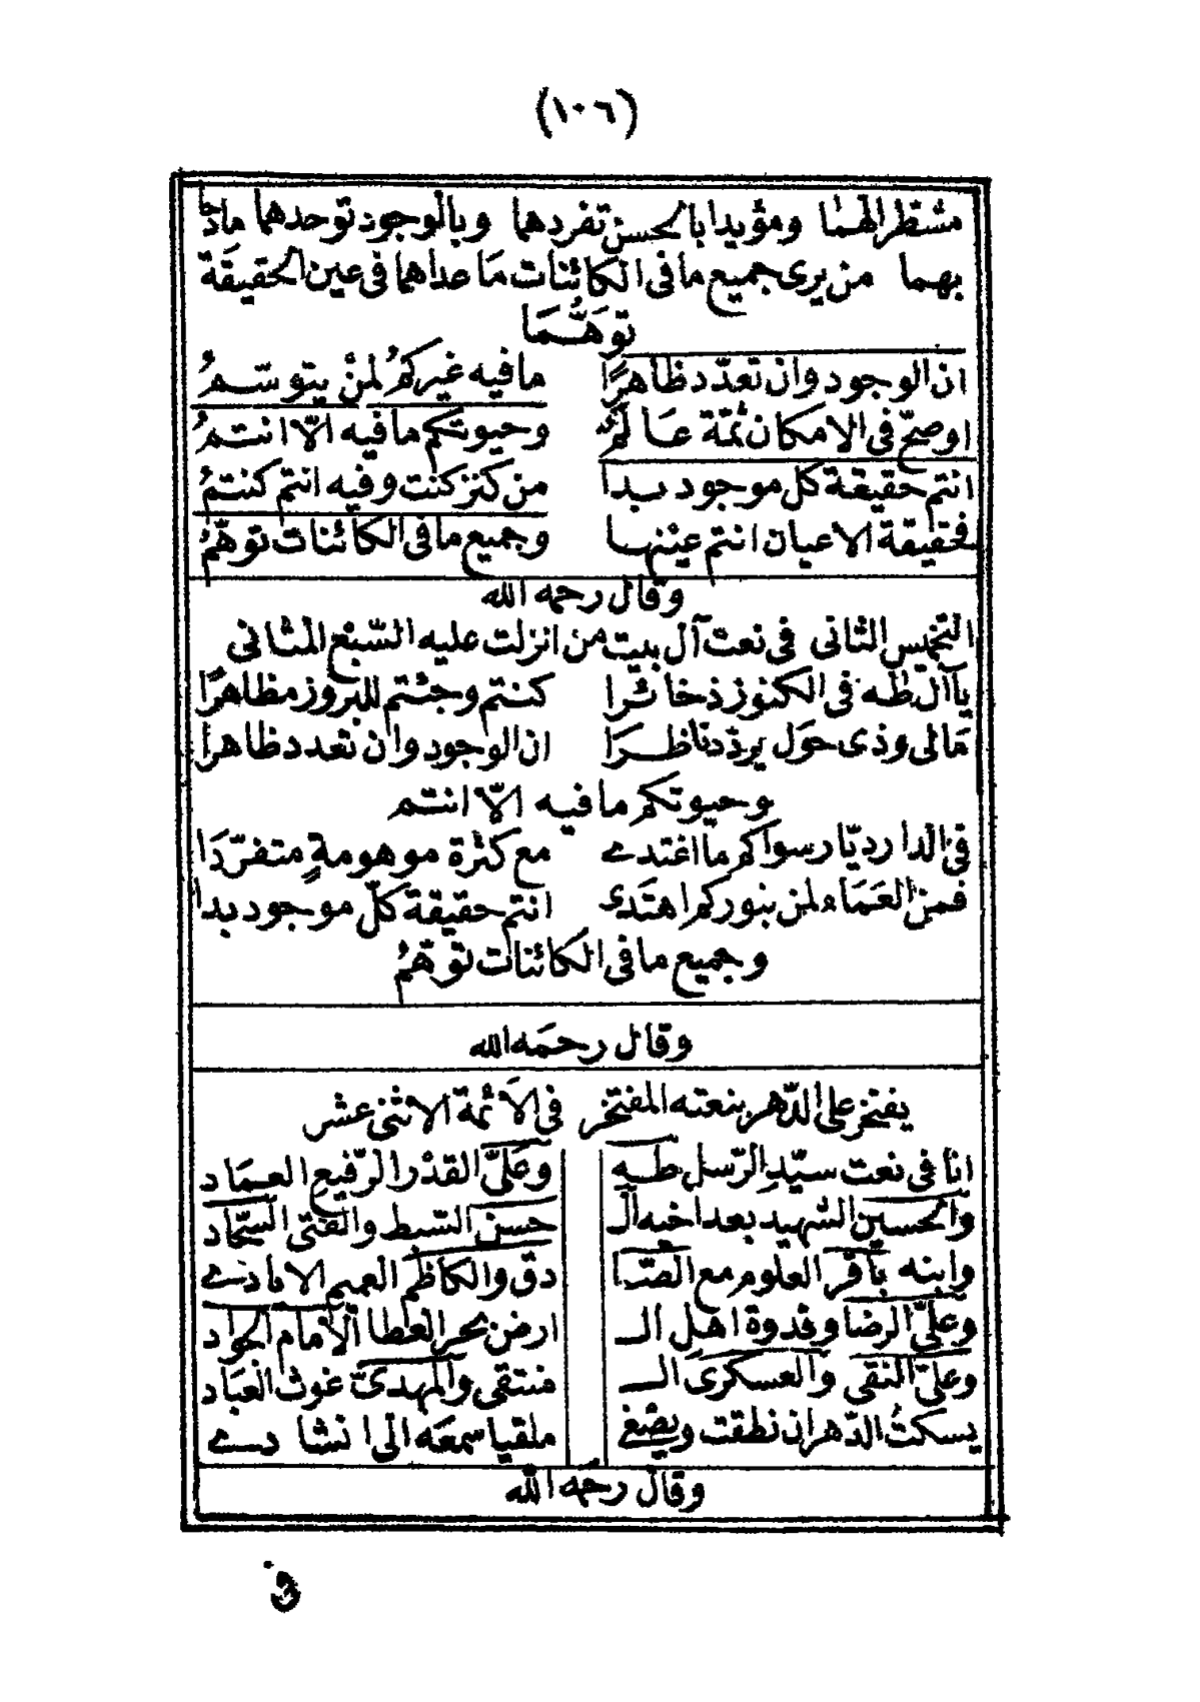 (١٠٦)
مشطرالهما ومؤيدا بالحسن تفردهما وبالوجود توحدهما مادحا
بهما من يرى جميع مافى الكائنات مَاعداهما فى عين الحقيقَة
توَهُّمَا
ان الوجود وان تعدّد ظاهرًا مافيه غيركمُ لمنْ يتوسّمُ
اوصحّ فى الامكان ثمّة عالمٌ وحيوتكم مافيه الاّ انتمُ
انتم حقيقة كل موجود بدا من كنز كنت وفيه انتم كنتمُ
فحقيقة الاعيان انتم عينها وجميع مافى الكائنات توهّمُ
وقال رحمه الله
التخميس الثانى فى نعت آل بيت من انزلت عليه السّبع المثانى
ياآل طٰه فى الكنوز ذخائرا كنتم وجئتم للبروز مظاهرًا
مَالى وذى حَول يردّد ناظرَا ان الوجود وان تعدد ظاهرا
وحيوتكم مافيه الاّ انتم
فى الدار ديّار سواكم مااغتدے مع كثرة موهومةٍ متفرّدَا
فمن العَمَاء لمن بنوركم اهتَدى انتم حقيقة كلّ موجود بدا
وجميع مافى الكائنات توهّمُ
وقال رحمَه الله
يفتخر على الدّهر بنعته المفتخر فى الأئمة الاثنى عشر
انا فى نعت سيّدِ الرّسل طٰه وعَلىّ القدْر الرّفيعِ العمَاد
والحسين الشهيد بعد اخيه آل حسن السّبط والفتى السّجّاد
وابنه باقر العلوم مع الصّا دق والكاظم العميم الايادے
وعلىّ الرضا وقدوة اهل الـ ارض بحر العطا الامام الجواد
وعلىّ النقى والعسكرى الـ منتقى والمهدىّ غوث العبَاد
يسكتُ الدّهر ان نطقت ويصْغى ملقيا سمعَه الى انشادے
وقال رحمه الله
فى